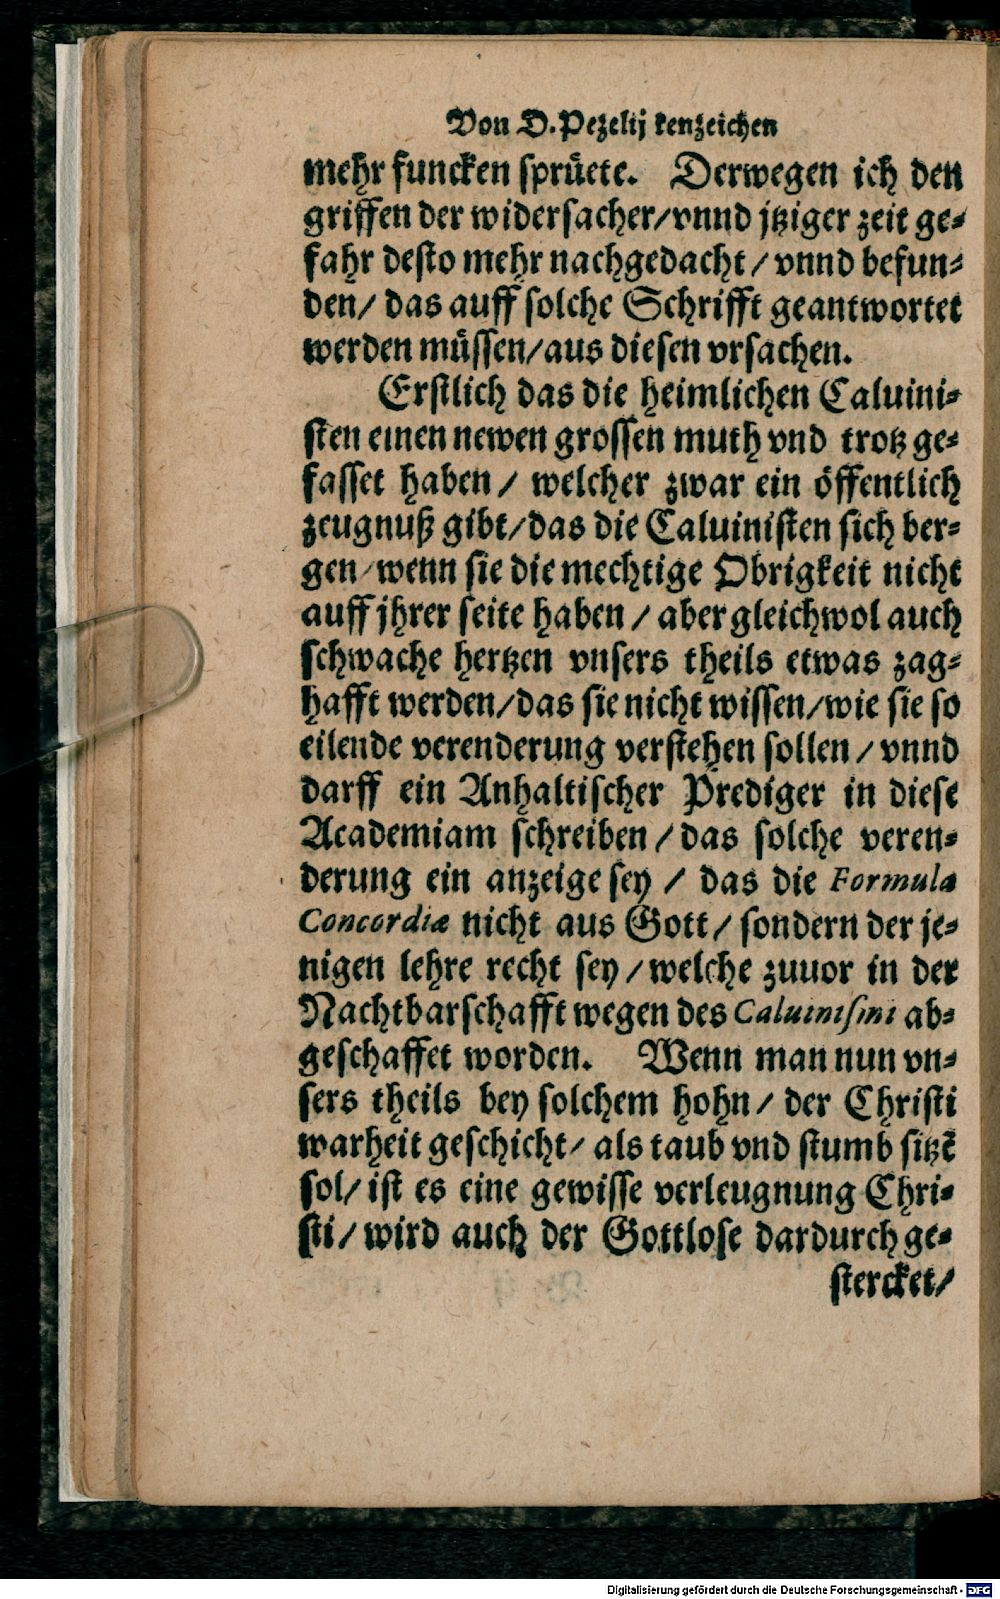 Von D. Pezelij kenzeichen
mehr funcken sprüete. Derwegen ich den
griffen der widersacher/vnnd jtziger zeit ge-
fahr desto mehr nachgedacht / vnnd befun-
den/ das auff solche Schrifft geantwortet
werden müssen/aus diesen vrsachen.
Erstlich das die heimlichen Caluini-
sten einen newen grossen muth vnd trotz ge-
fasset haben / welcher zwar ein öffentlich
zeugnuß gibt/das die Caluinisten sich ber-
gen/wenn sie die mechtige Obrigkeit nicht
auff jhrer seite haben / aber gleichwol auch
schwache hertzen vnsers theils etwas zag-
hafft werden/das sie nicht wissen/wie sie so
eilende verenderung verstehen sollen / vnnd
darff ein Anhaltischer Prediger in diese
Academiam schreiben / das solche veren-
derung ein anzeige sey / das die Formula
Concordiæ nicht aus Gott/ sondern der je-
nigen lehre recht sey / welche zuuor in der
Nachtbarschafft wegen des Caluinismi ab-
geschaffet worden. Wenn man nun vn-
sers theils bey solchem hohn/ der Christi
warheit geschicht/ als taub vnd stumb sitzẽ
sol/ ist es eine gewisse verleugnung Chri-
sti/ wird auch der Gottlose dardurch ge-
stercket/
Digitalisierung gefördert durch die Deutsche Forschungsgemeinschaft - DFG